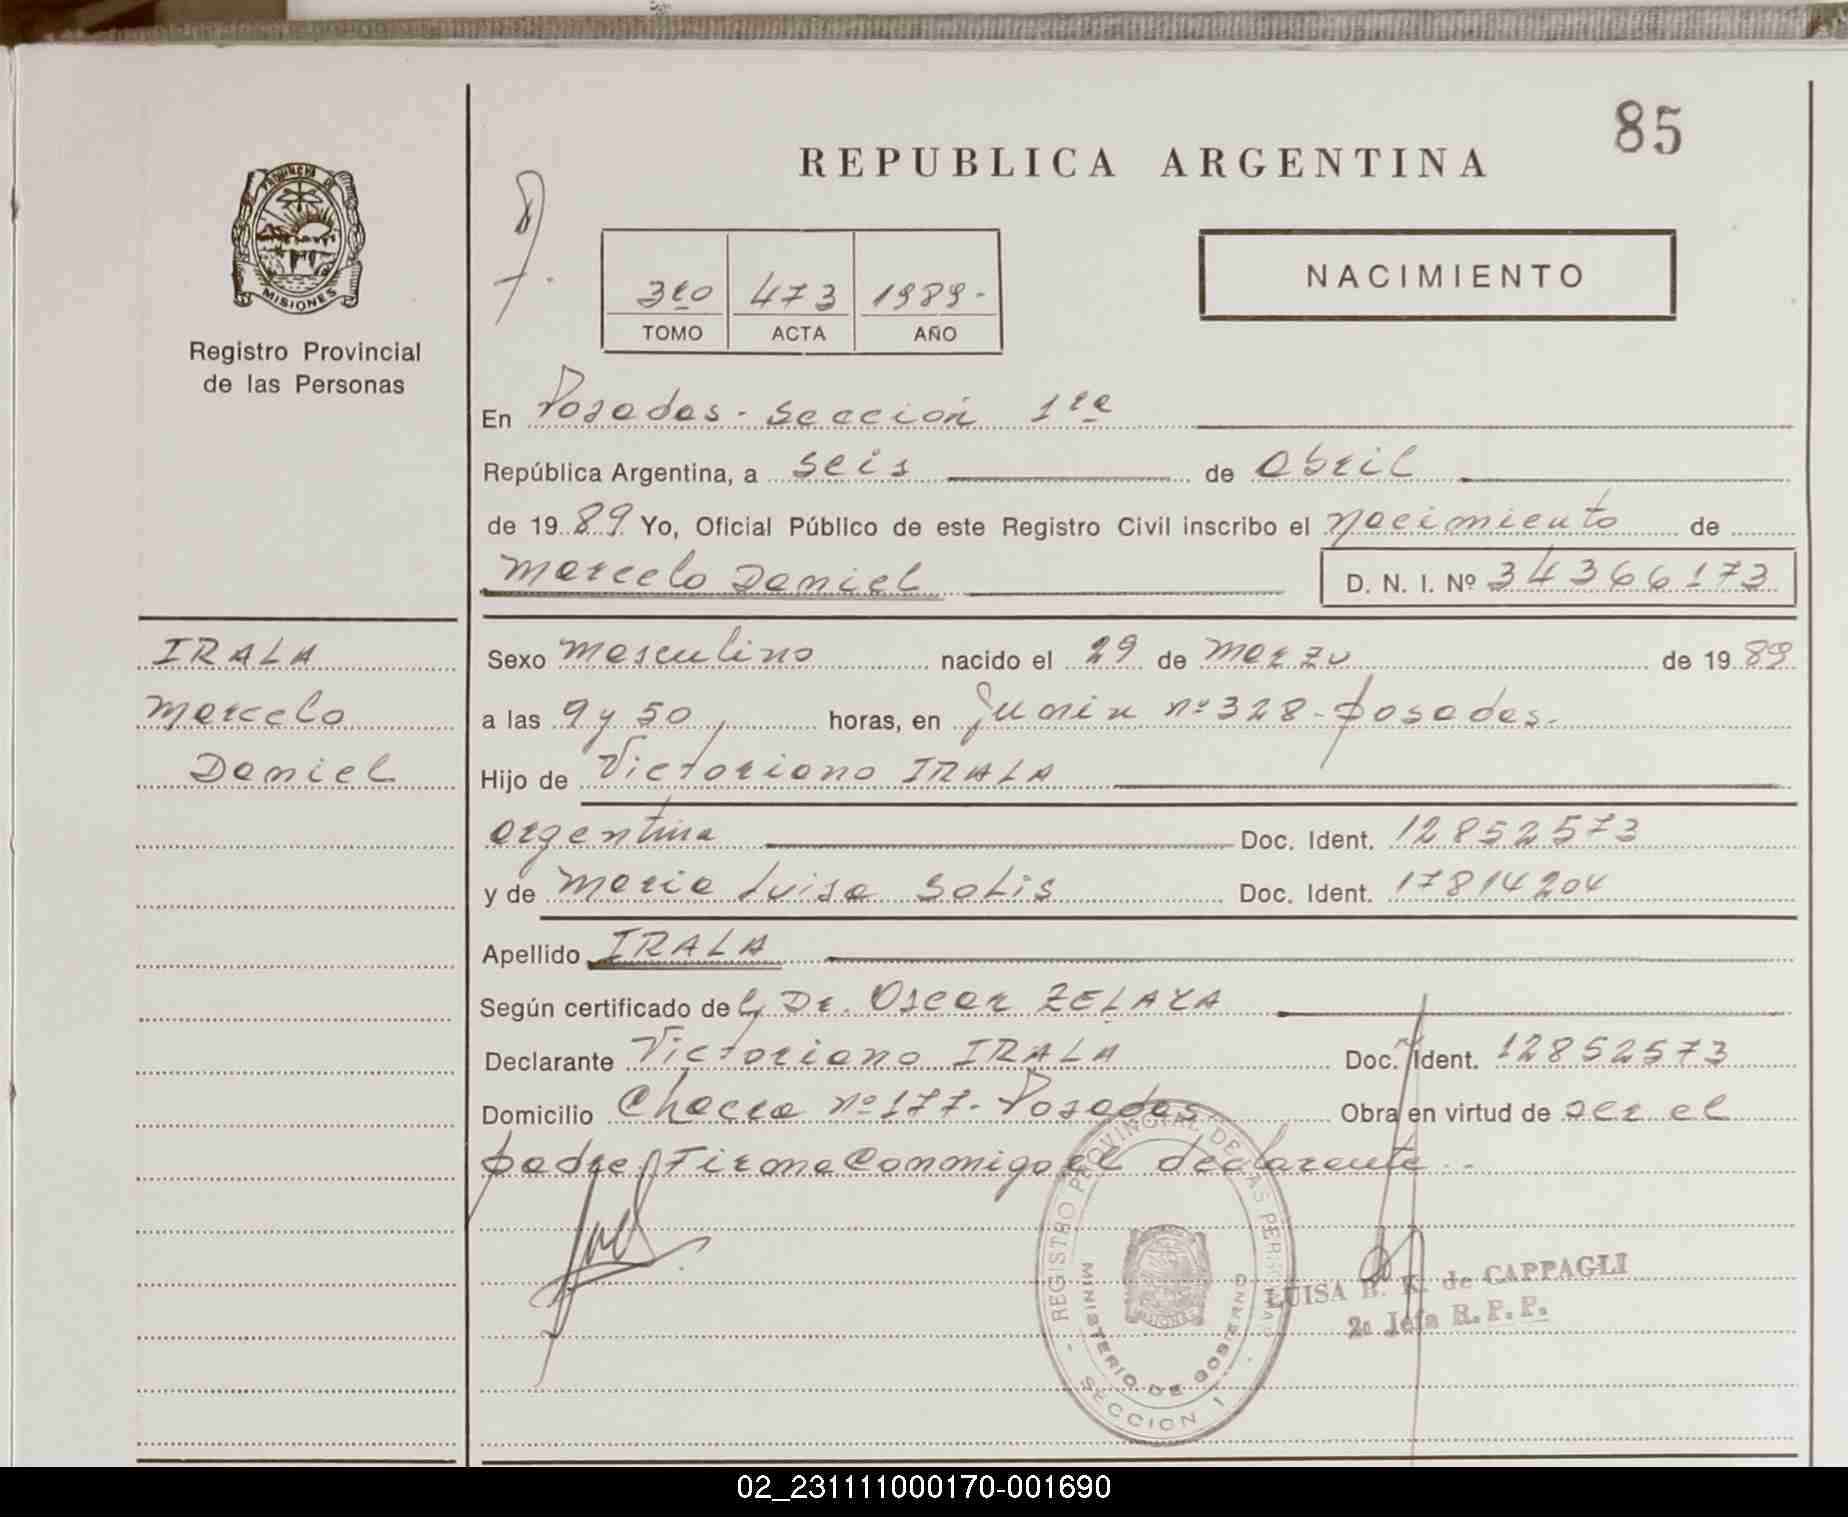 85
REPUBLICA ARGENTINA
PROVINCIA DE
MISIONES
Registro Provincial
de las Personas
3ro 473 1989-
TOMO ACTA AÑO
NACIMIENTO
En Posadas - sección 1ra
República Argentina, a seis de abril
de 1989 Yo, Oficial Público de este Registro Civil inscribo el nacimiento de
Marcelo Daniel D. N. I. Nº 34366173
IRALA
Marcelo
Daniel
Sexo masculino nacido el 29 de marzo de 1989
a las 9 y 50, horas, en Junín nº 328 - Posadas.
Hijo de Victoriano IRALA
argentina Doc. Ident. 12852573
y de Maria Luisa SOLIS Doc. Ident. 17814204
Apellido IRALA
Según certificado del Dr. Oscar ZELAYA
Declarante Victoriano IRALA Doc. Ident. 12852573
Domicilio Chacra nº 177 - Posadas Obra en virtud de ser el
padre. Firma conmigo el declarante.-
REGISTRO PROVINCIAL DE LAS PERSONAS
MINISTERIO DE GOBIERNO
SECCION 1
LUISA B. K. de CAPPAGLI
2a Jefa R. P. P.
02_231111000170-001690